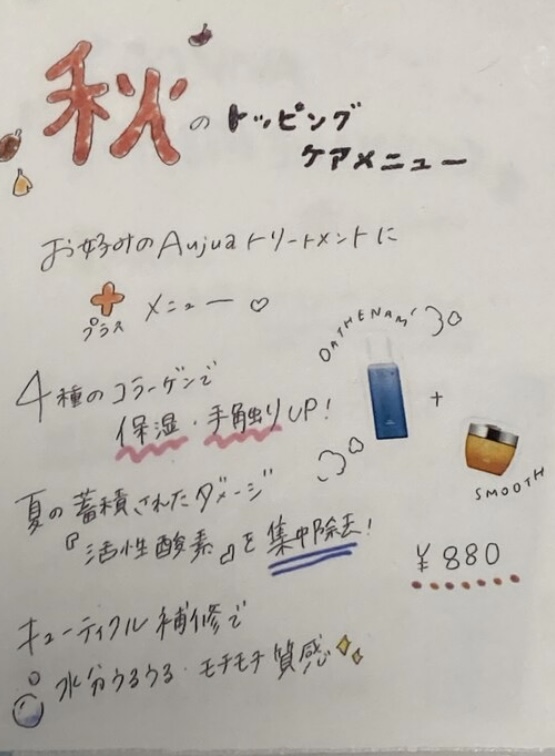 秋のトッピング
ケアメニュー
お好みのAujuaトリートメントに
プラス メニュー♡
4種のコラーゲンで
保湿・手触りUP!
OATHENAM'
+
SMOOTH
夏の蓄積されたダメージ
『活性酸素』を集中除去!
¥880
キューティクル補修で
水分うるうる・モチモチ質感